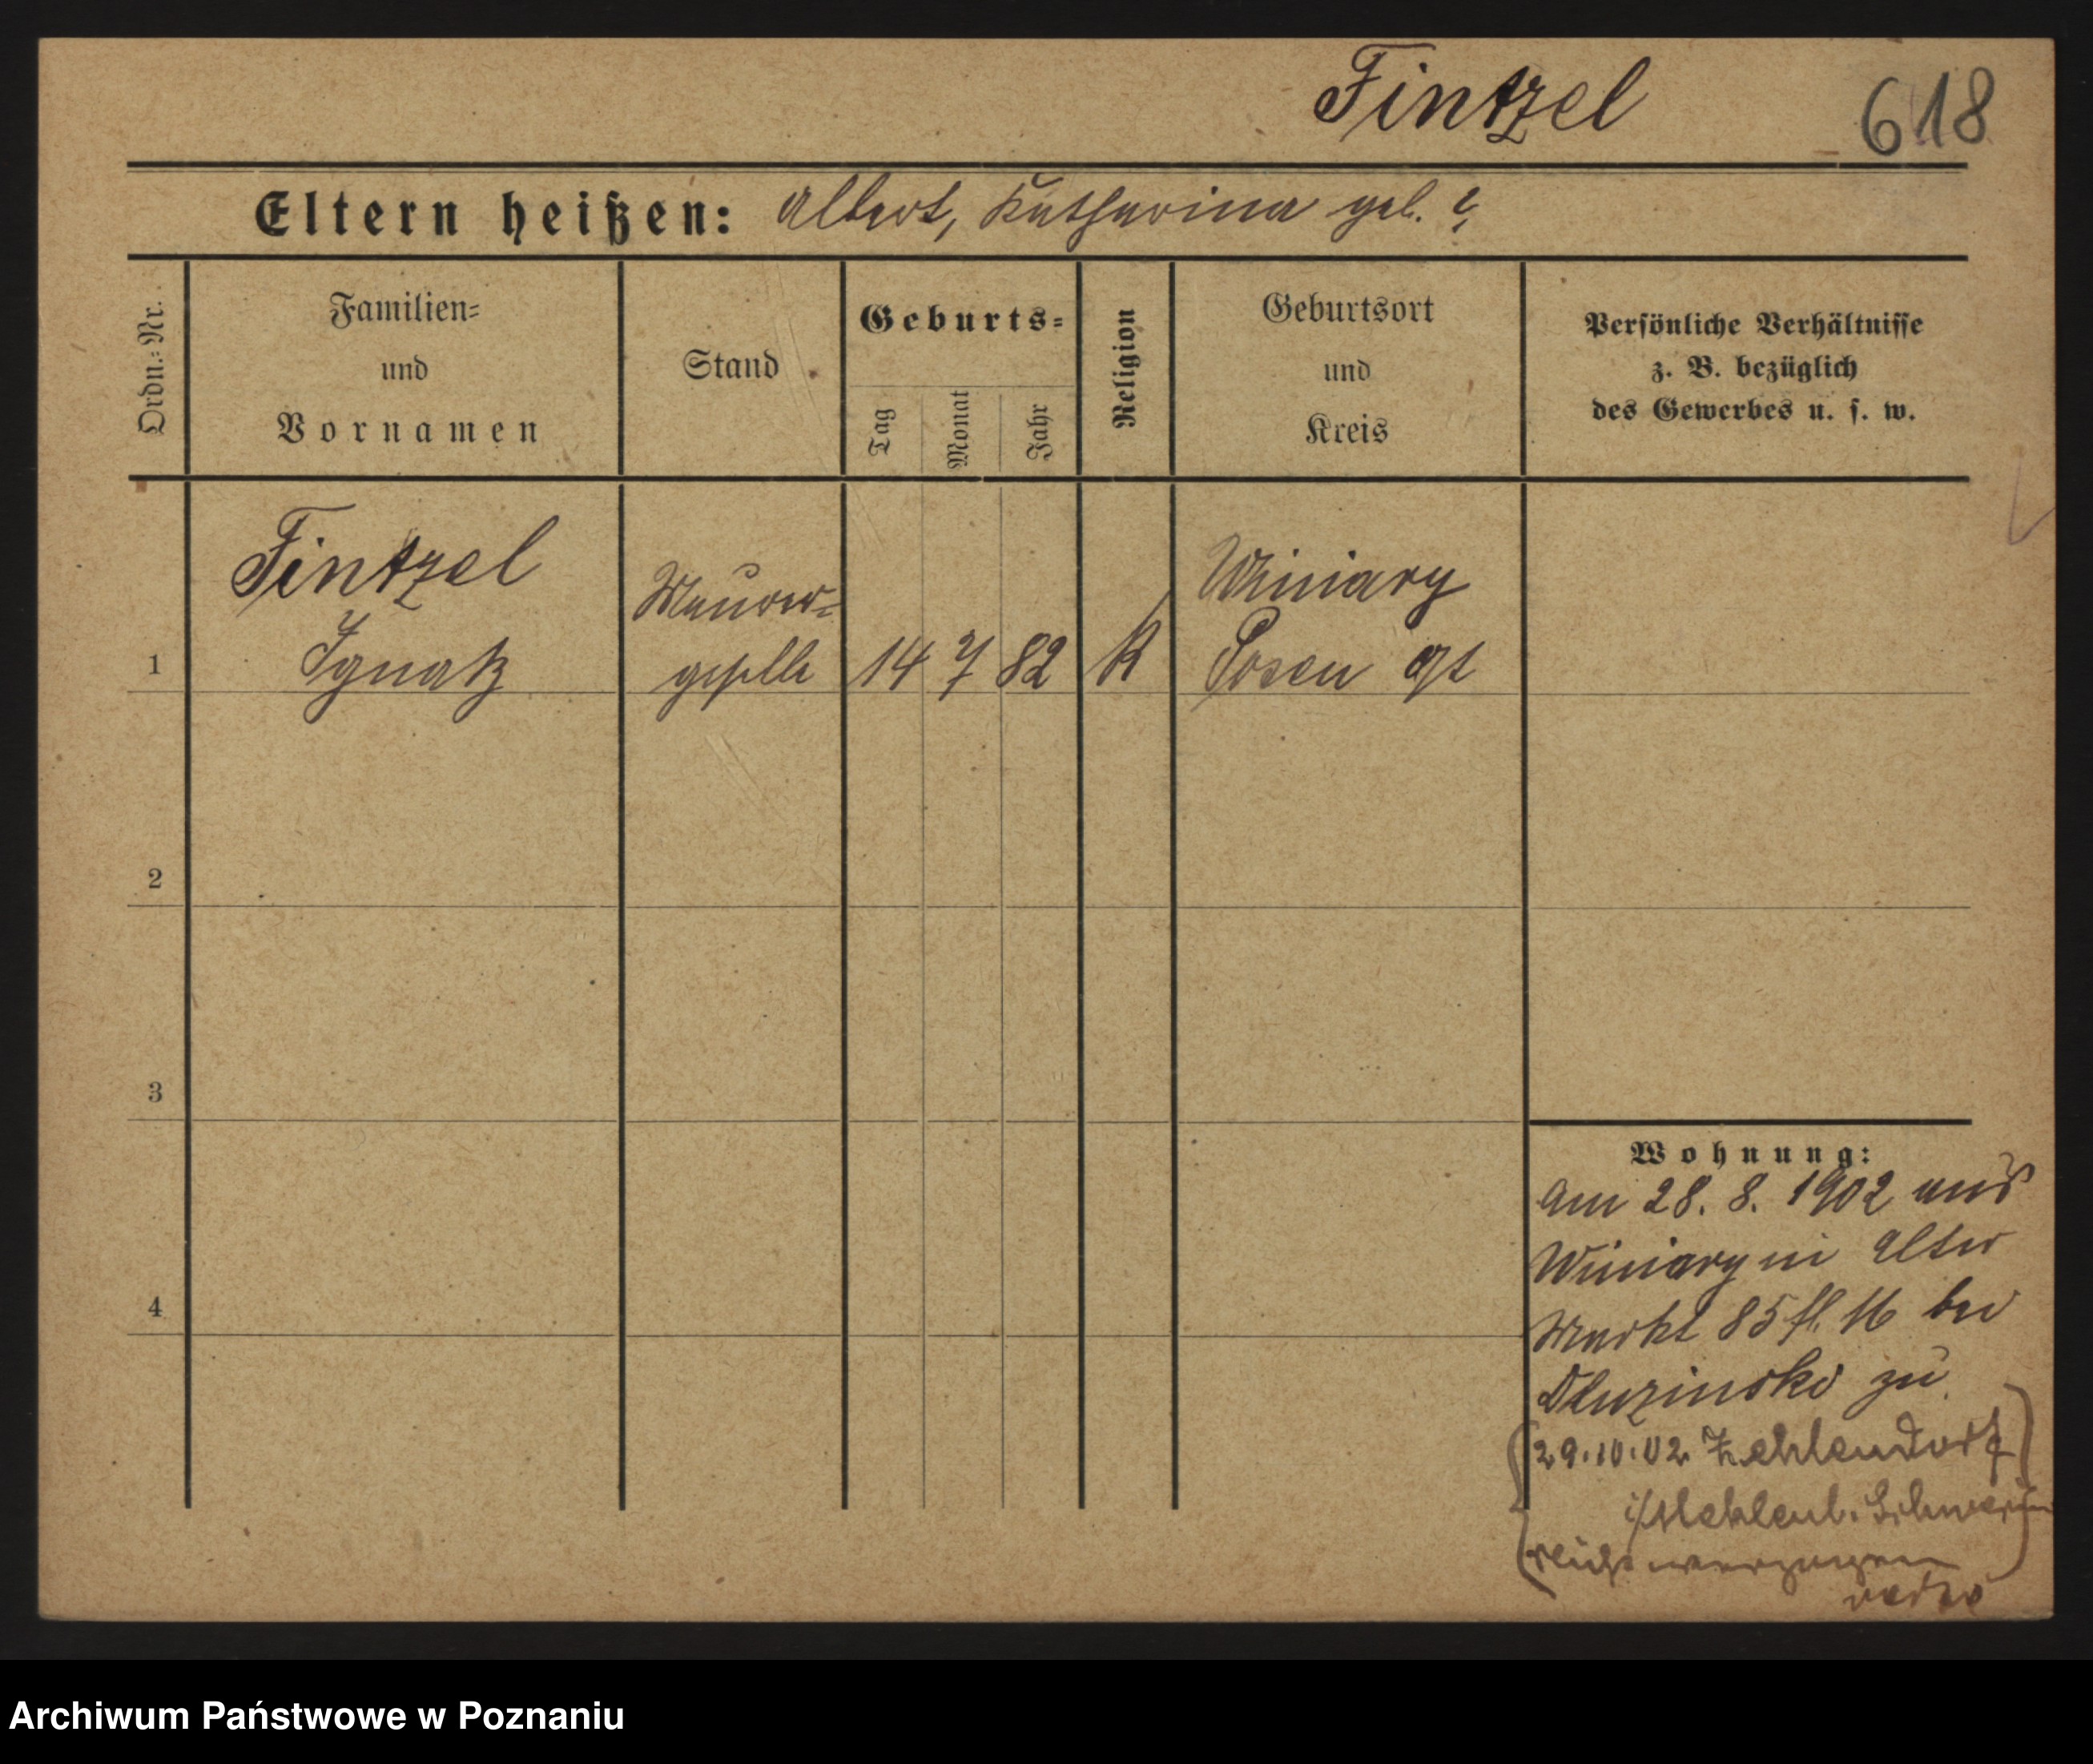 Fintzel
618
Eltern heißen: Albert, Katharina geb. ?
Ordn.-Nr.
Familien-
und
Vornamen
Stand
Geburts-
Tag
Monat
Jahr
Religion
Geburtsort
und
Kreis
Persönliche Verhältnisse
z. B. bezüglich
des Gewerbes u. s. w.
Fintzel
Ignatz
Maurer-
geselle
1
14 7 82 K
Winiary
Posen Ost
2
3
4
Wohnung:
Am 28. 8. 1902 aus
Winiary in Alter
Markt 85 16 bei
Dluzinski zu
29.10.02 Zehlendorf
i/Meklenb. Schwerin
nicht verzogen
Archiwum Państwowe w Poznaniu